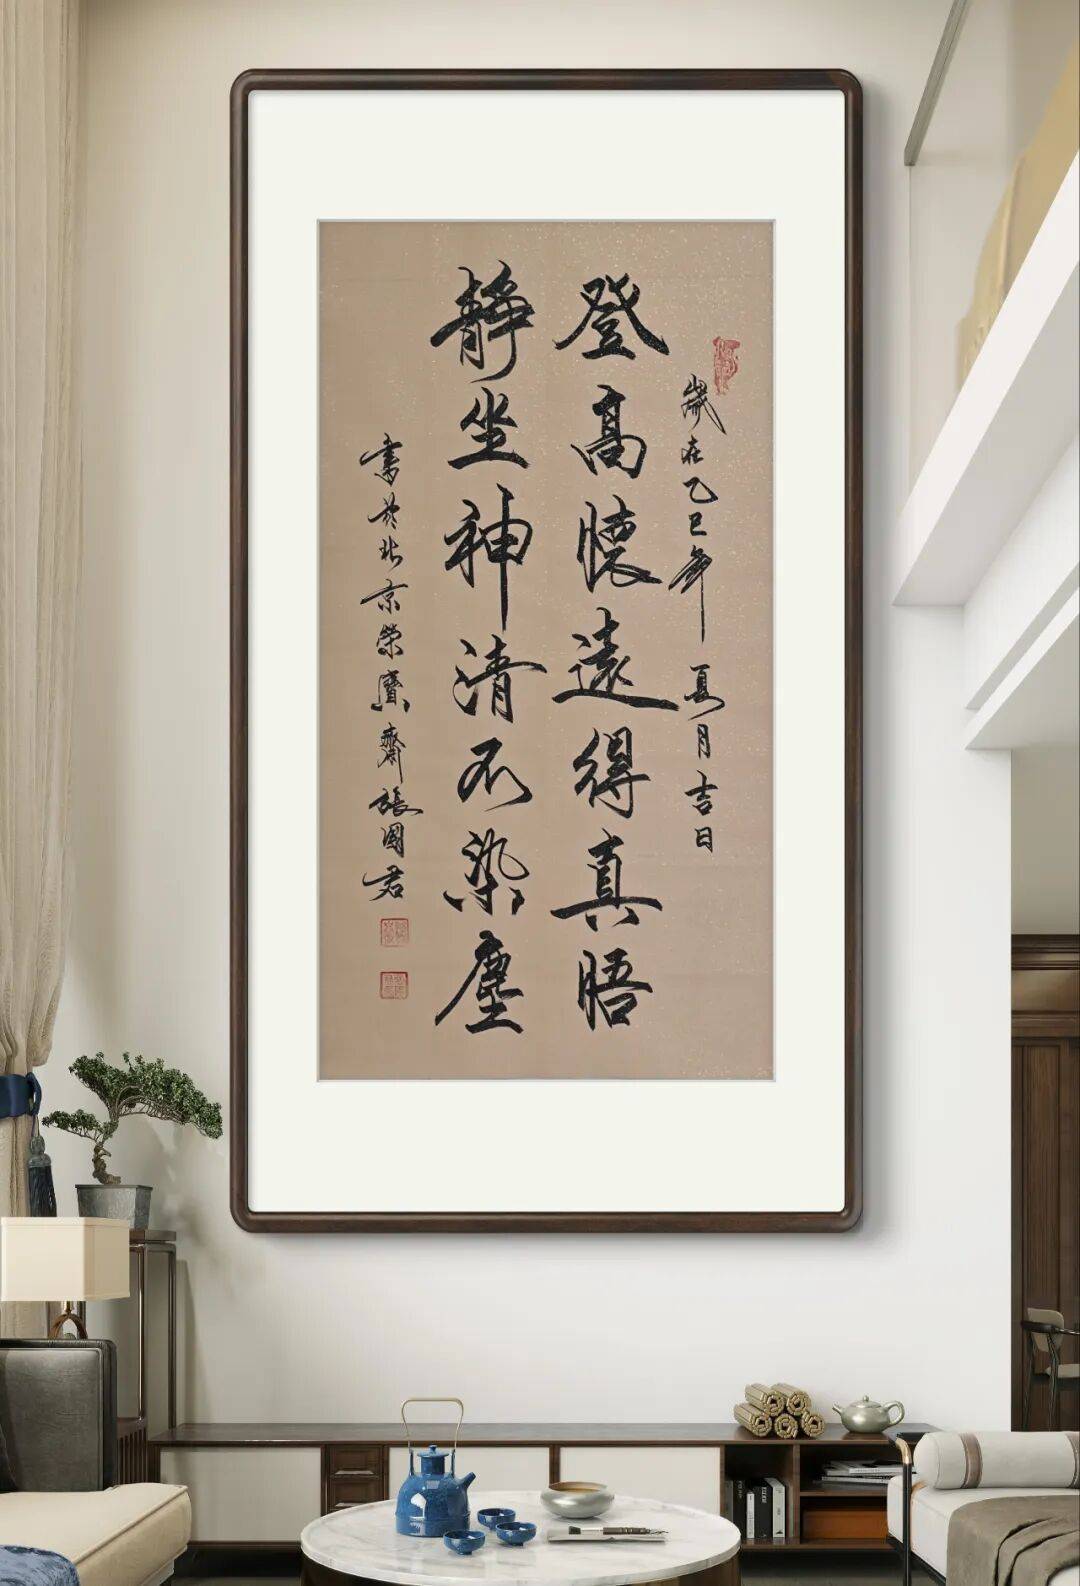 歲在乙巳年夏月吉日
登高懷遠得真悟
靜坐神清不染塵
書於北京榮寶齋張國君